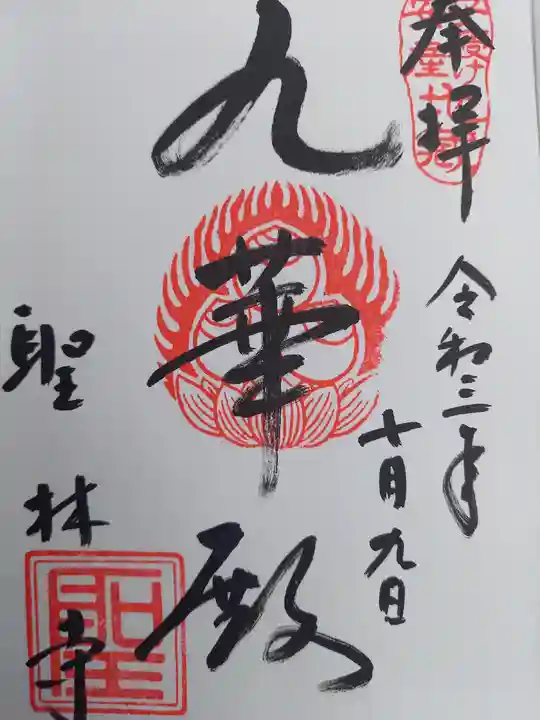 奉拝
令和三年
十月九日
九華殿
聖林寺